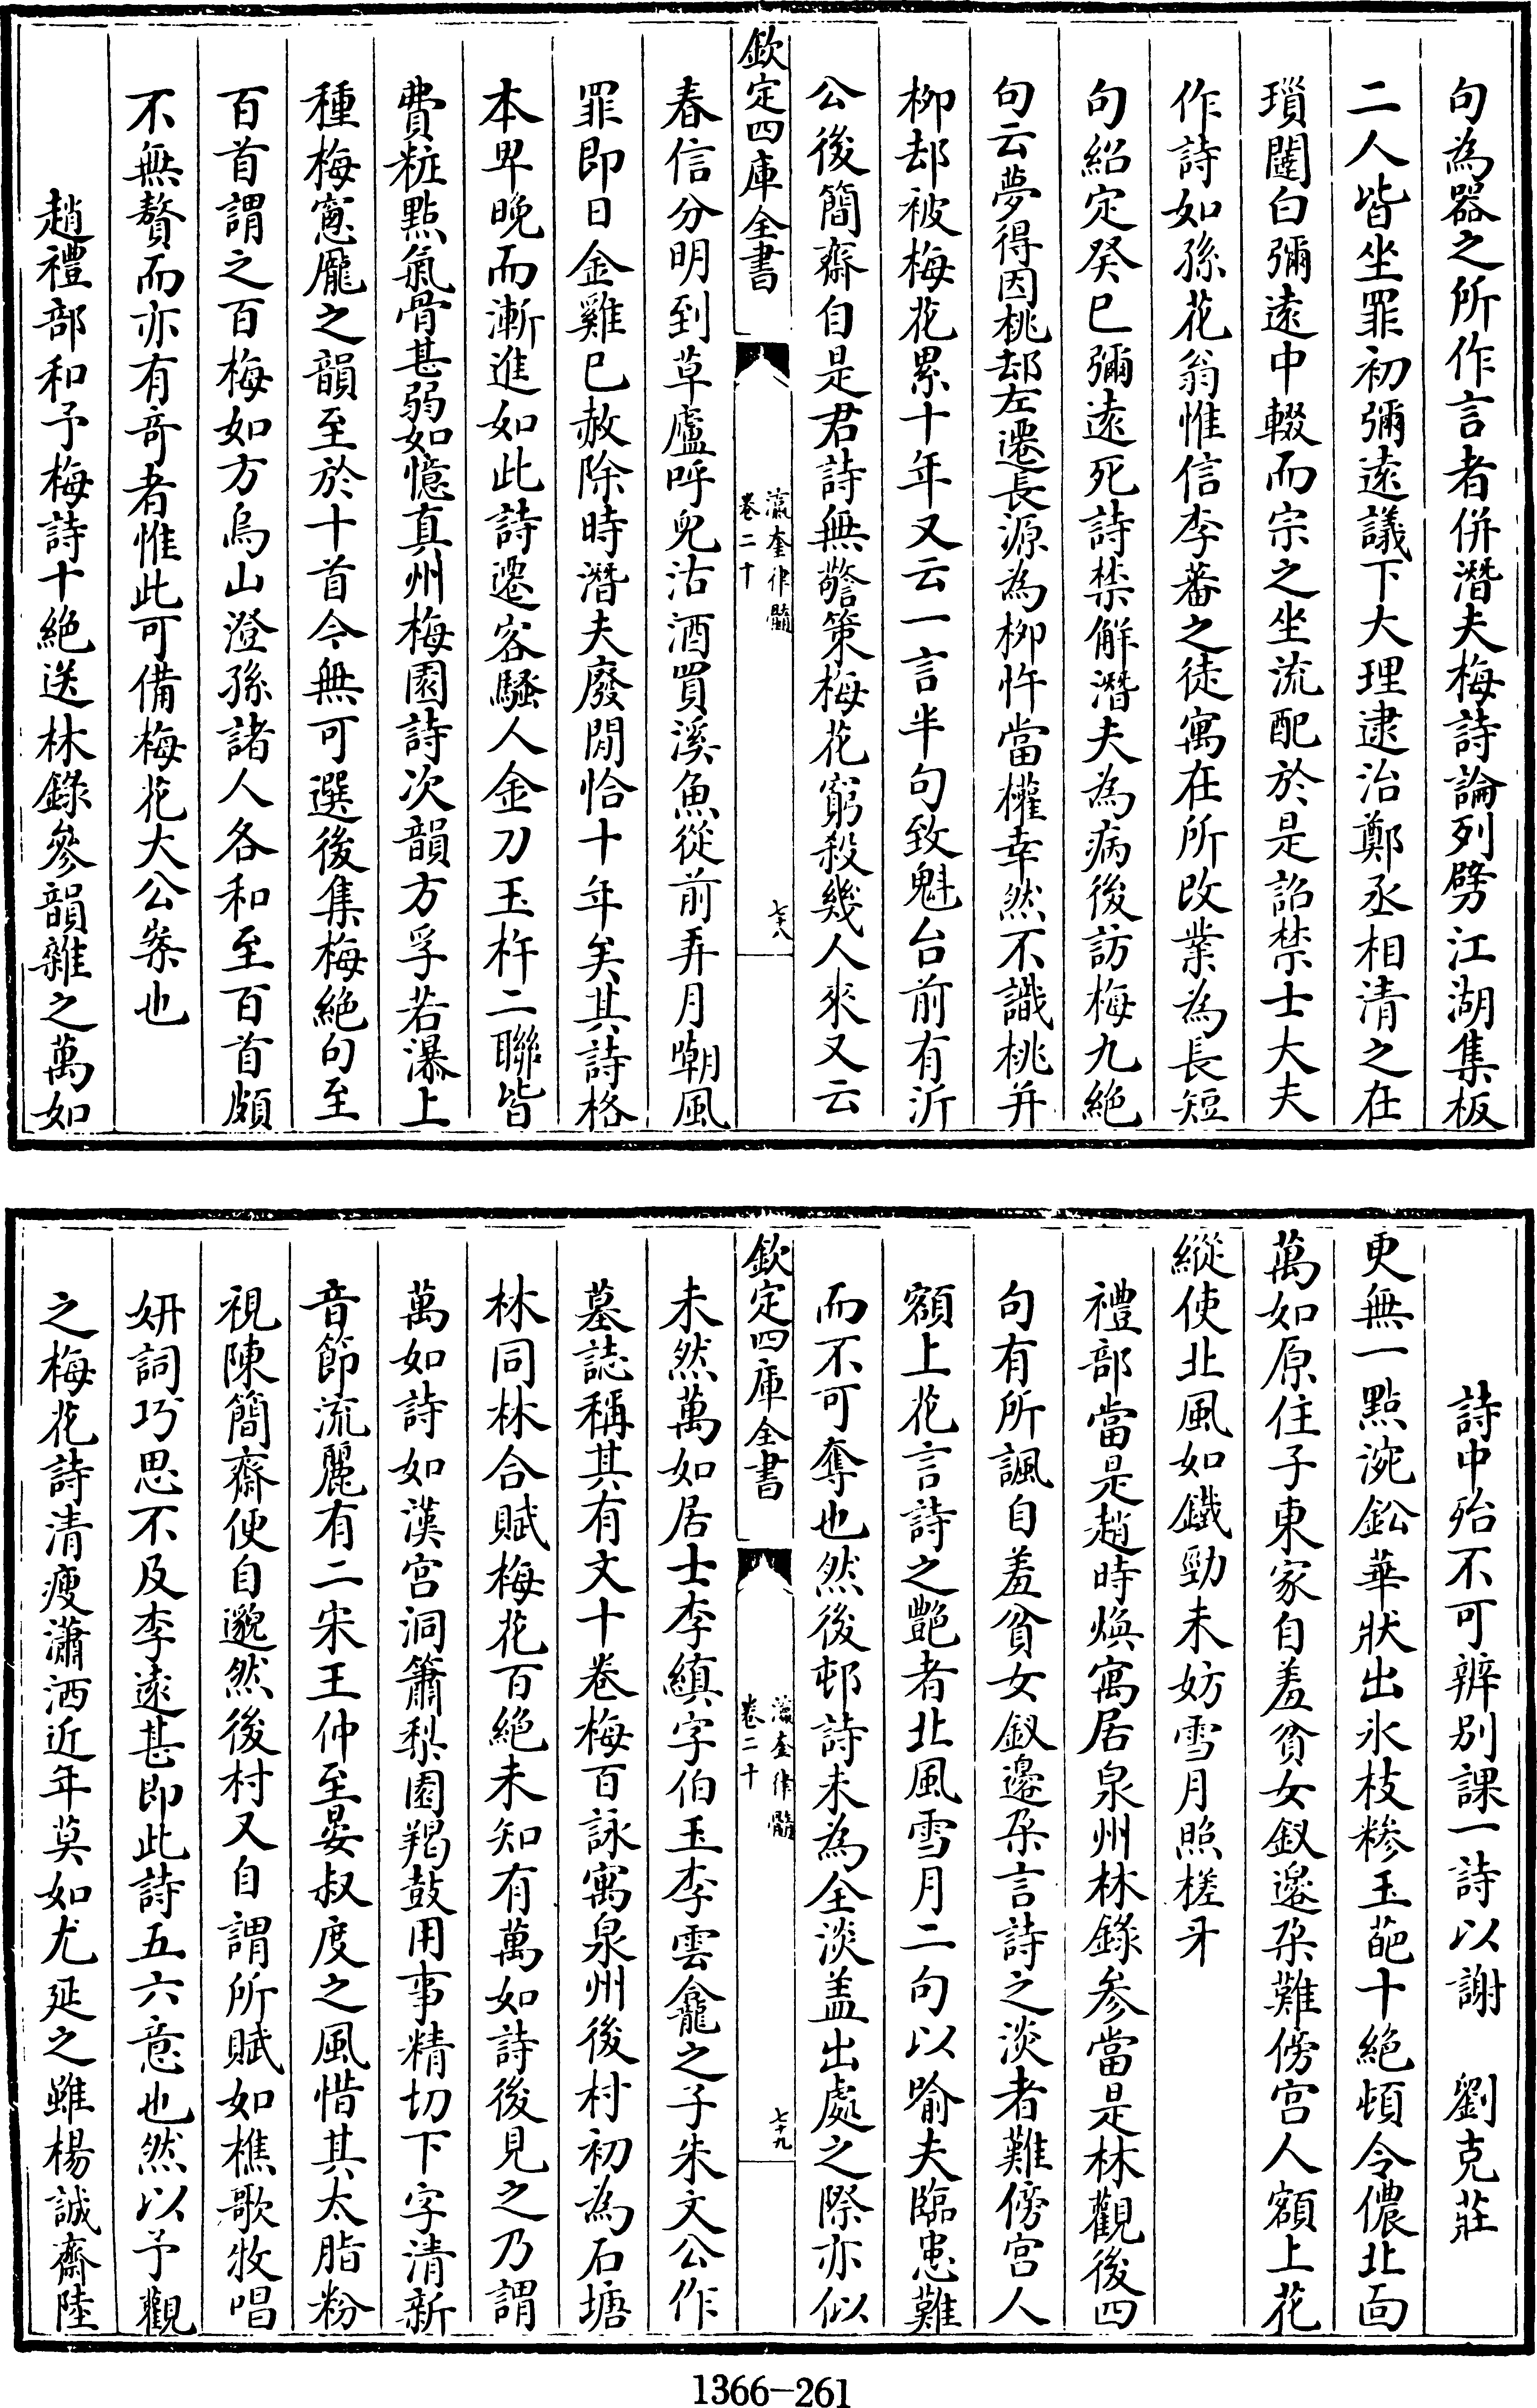 句為器之所作言者併潛夫梅詩論列劈江湖集板
二人皆坐罪初彌逺議下大理逮治鄭丞相清之在
瑣闥白彌逺中輟而宗之坐流配於是詔禁士大夫
作詩如孫花翁惟信李蕃之徒寓在所改業為長短
句紹定癸巳彌逺死詩禁解潛夫為病後訪梅九絶
句云夢得因桃却左遷長源為柳忤當權幸然不識桃并
柳却被梅花累十年又云一言半句致魁台前有沂
公後簡齋自是君詩無警策梅花窮殺幾人來又云
欽定四庫全書
瀛奎律髓
卷二十
七十八
春信分明到草廬呼兒沽酒買溪魚從前弄月嘲風
罪即日金雞已赦除時潛夫廢閒恰十年矣其詩格
本卑晚而漸進如此詩遷客騷人金刀玉杵二聯皆
費粧點氣骨甚弱如憶真州梅園詩次韻方孚若瀑上
種梅窻龎之韻至於十首今無可選後集梅絶句至
百首謂之百梅如方烏山澄孫諸人各和至百首頗
不無贅而亦有奇者惟此可備梅花大公案也
趙禮部和予梅詩十絶送林錄參韻雜之萬如
詩中殆不可辨别課一詩以謝　劉克莊
更無一點涴鉛華狀出氷枝糝玉葩十絶頓令儂北面
萬如原住子東家自羞貧女釵邉朶難傍宫人額上花
縱使北風如鐵勁未妨雪月照槎牙
禮部當是趙時煥寓居泉州林錄參當是林觀後四
句有所諷自羞貧女釵邉朶言詩之淡者難傍宫人
額上花言詩之艶者北風雪月二句以喻夫臨患難
而不可奪也然後邨詩未為全淡盖出處之際亦似
欽定四庫全書
瀛奎律髓
卷二十
七十九
未然萬如居士李縝字伯玉李雲龕之子朱文公作
墓誌稱其有文十卷梅百詠寓泉州後村初為石塘
林同林合賦梅花百絶未知有萬如詩後見之乃謂
萬如詩如漢宫洞簫梨園羯鼓用事精切下字清新
音節流麗有二宋王仲至晏叔度之風惜其太脂粉
視陳簡齋便自邈然後村又自謂所賦如樵歌牧唱
妍詞巧思不及李逺甚即此詩五六意也然以予觀
之梅花詩清瘦瀟洒近年莫如尤延之雖楊誠齋陸
1366-261